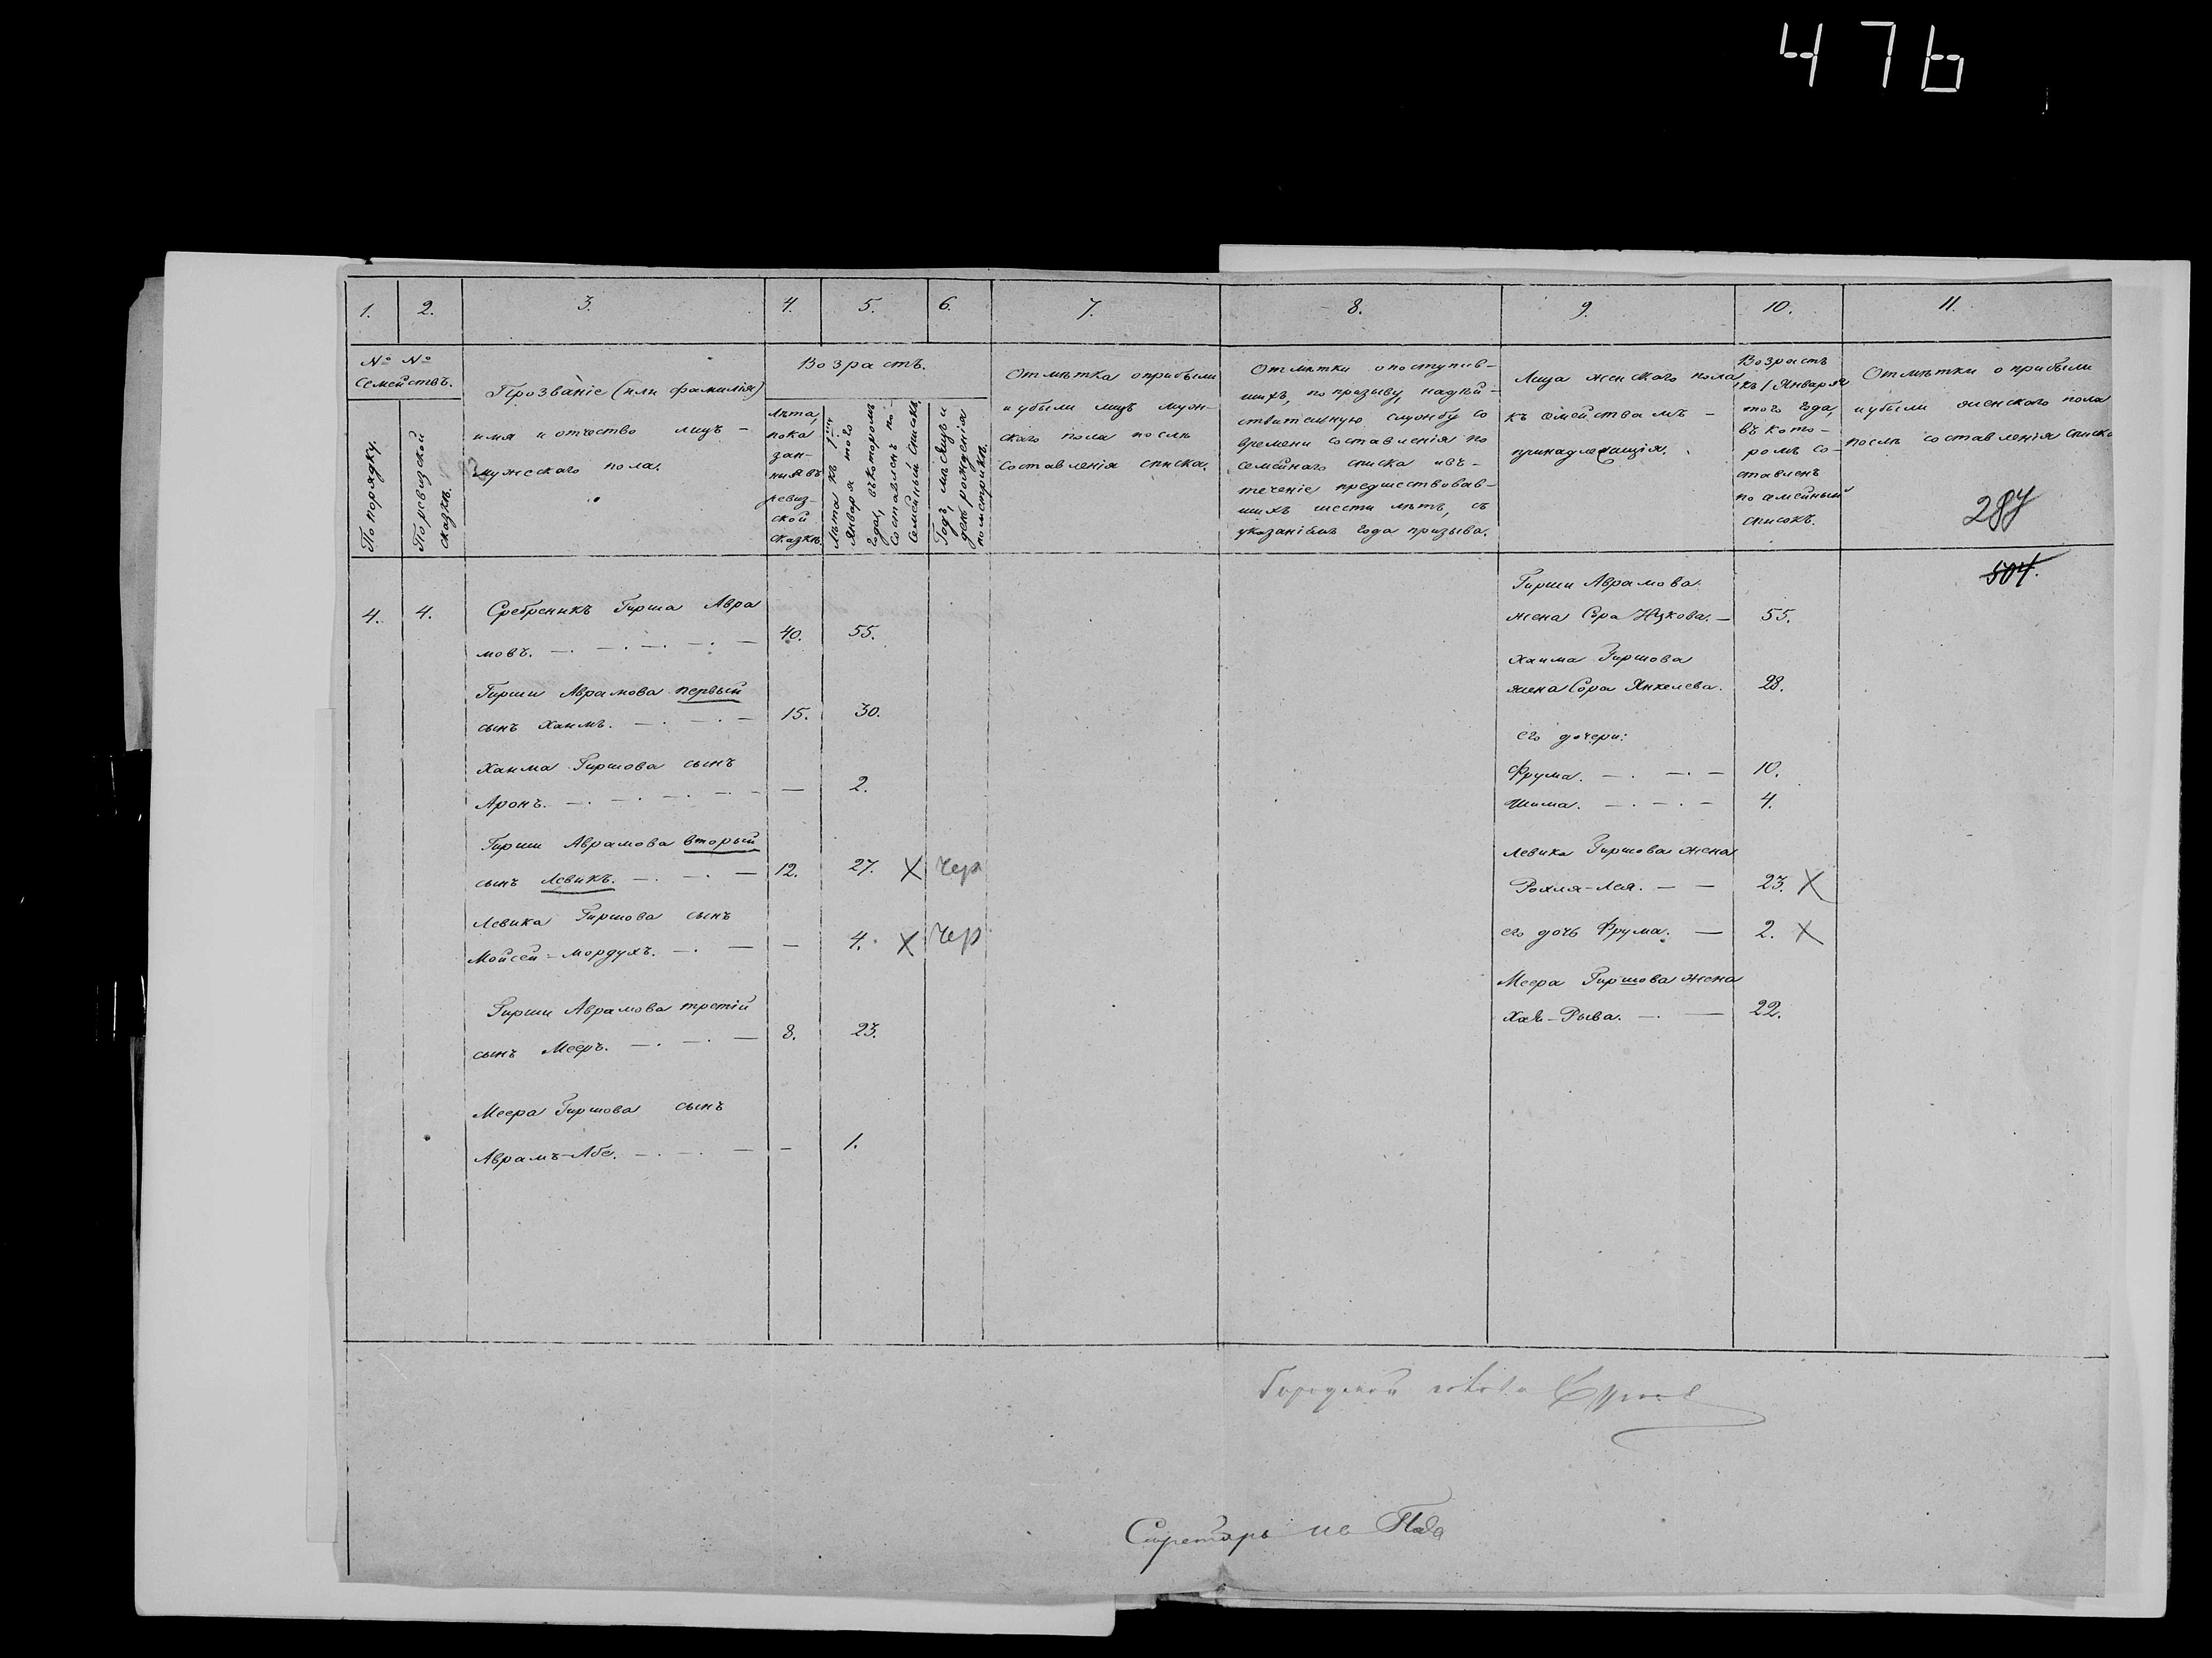 476
1. 2. 3. 4. 5. 6. 7. 8. 9. 10. 11.
№ №
Семействъ.
По порядку.
По ревизской
сказкѣ.
Прозваніе (или фамилія)
имя и отчество лицъ –
мужескаго пола.
Возрастъ.
Лѣта,
пока
зан-
ныя въ
ревиз-
ской
сказкѣ.
Лѣта къ 1
Января того
года, въ которомъ
составленъ по-
семейный списокъ.
Годъ, мѣсяцъ и
день рожденія
по метрикѣ.
Отмѣтка о прибыли
и убыли лицъ муж-
скаго пола послѣ
составленія списка.
Отмѣтки о поступив-
шихъ, по призыву, на дѣй-
ствительную службу со
времени составленія по
семейнаго списка и въ-
теченіе предшествовав-
шихъ шести лѣтъ, съ
указаніемъ года призыва.
Лица женскаго пола
къ семействамъ –
принадлежащія.
Возрастъ
къ 1 Января
того года,
въ кото-
ромъ со-
ставленъ
по семейный
списокъ.
Отмѣтки о прибыли
и убыли женскаго пола
послѣ составленія списка
287
504.
4. 4. Сребреникъ Гирша Авра
мовъ. 40. 55.
Гирши Аврамова первый
сынъ Хаимъ. 15. 30.
Хаима Гиршова сынъ
Аронъ. — 2.
Гирши Аврамова вторый
сынъ Левикъ. 12. 27. X чер
Левика Гиршова сынъ
Мойсей=Мордухъ. — 4. X чер
Гирши Аврамова третій
сынъ Мееръ. 8. 23.
Меера Гиршова сынъ
Аврамъ-Абе. — 1.
Гирши Аврамова
жена Сора Ицкова. — 55.
Хаима Гиршова
жена Сора Янкелева. 28.
его дочери:
Фрума. 10.
Шима. 4.
Левика Гиршова жена
Рохля-Лея. — — 23. X
его дочь Фрума. — 2. X
Меера Гиршова жена
Хая-Рыва. 22.
Городской голова
Секретарь